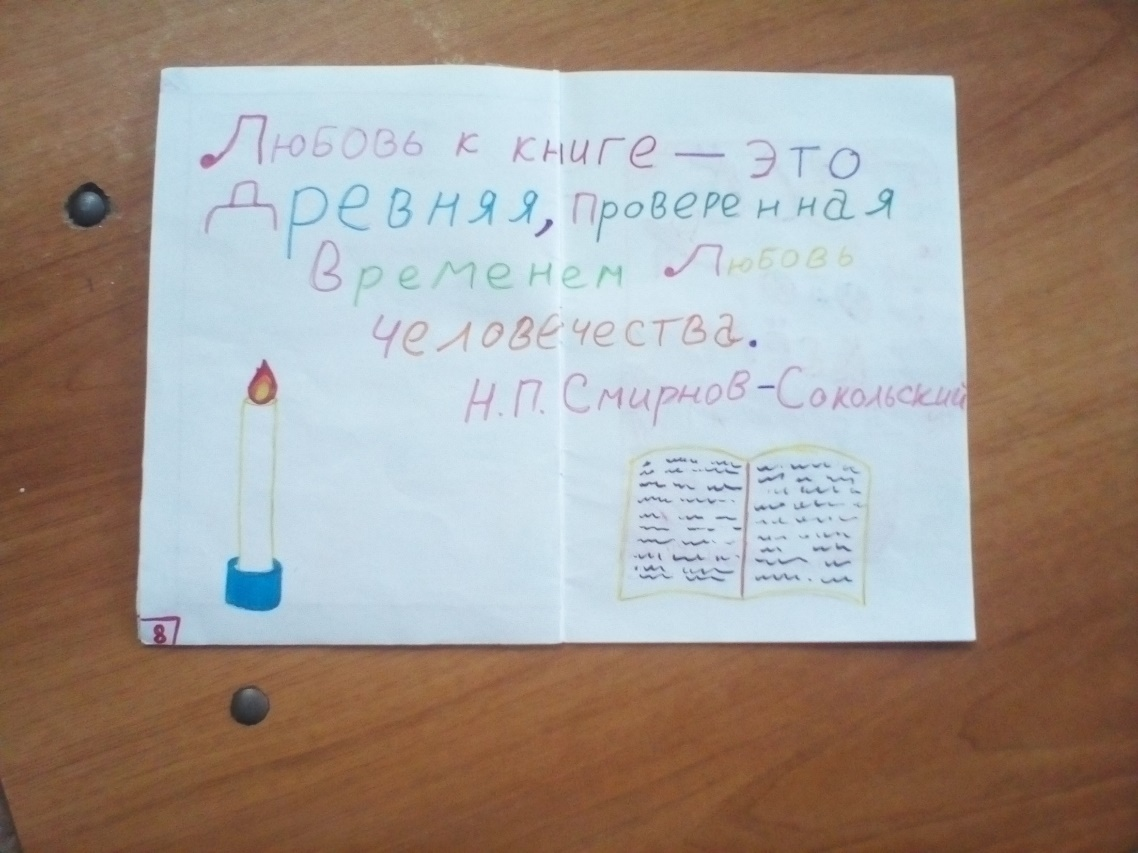 Любовь к книге — это
Древняя, проверенная
Временем Любовь
человечества.
Н.П. Смирнов-Сокольский
8